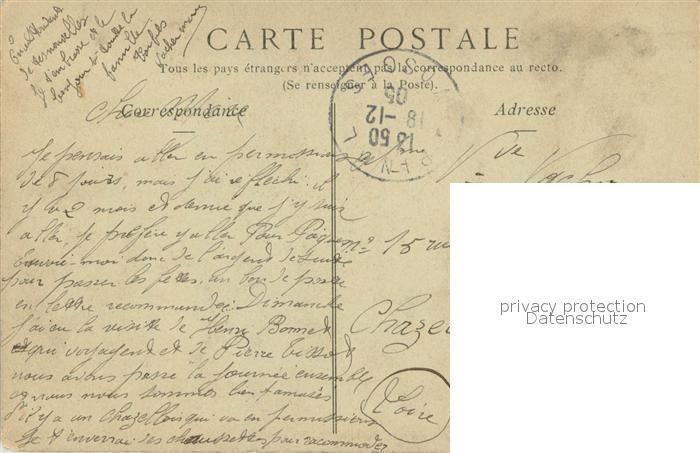 En attendant
de tes nouvelles
je t'embrasse et le
bonjour à toute la
famille
CARTE POSTALE
Tous les pays étrangers n'acceptent pas la correspondance au recto.
(Se renseigner à la Poste).
Correspondance
Adresse
Chère Mère
18-12
05
13 50
Je pensais aller en permission
de 8 jours, mais j'ai réfléchi il
y a 2 mois et demie que j'y suis
aller, je préfère y aller Pour Pâques
Envoie-moi donc de l'argent de suite
pour passer les fêtes. un bon de poste
en lettre recommandée. Dimanche
j'ai eu la visite de Henri Bonnet
qui voyagent et de Pierre Tissot
nous avons passé la journée ensemble
nous nous sommes bien amusés
S'il y a un Chazellois qui va en permission
je t'enverrai des chaussettes pour raccommoder
Vve
No 15 rue
Chazel
Loire
privacy protection
Datenschutz